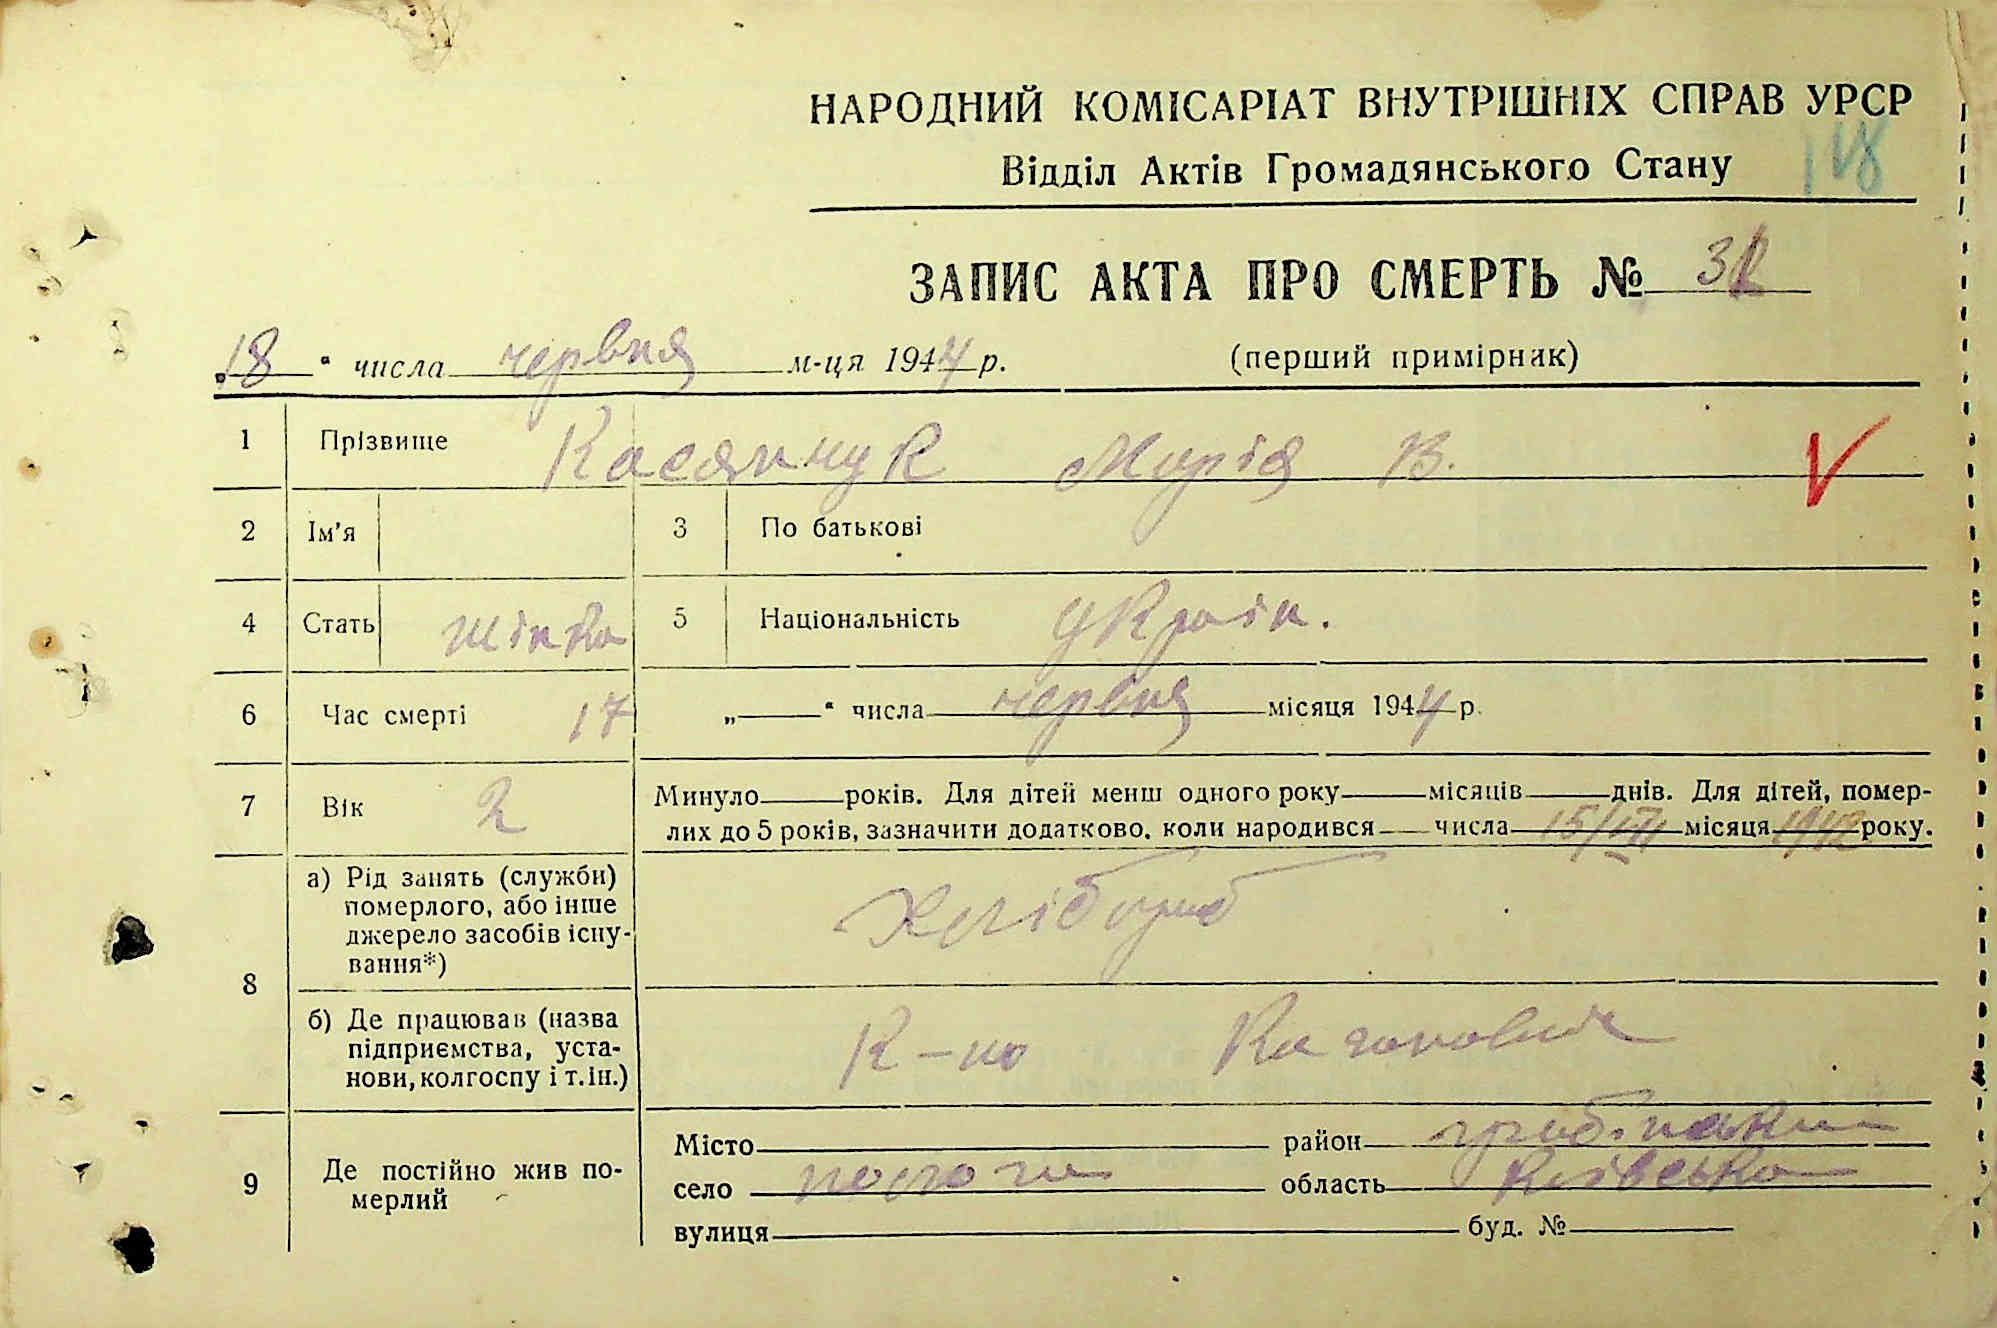 НАРОДНИЙ КОМІСАРІАТ ВНУТРІШНІХ СПРАВ УРСР
Відділ Актів Громадянського Стану
118
ЗАПИС АКТА ПРО СМЕРТЬ №
„18“ числа червня м-ця 1944 р. (перший примірник)
1 Прізвище Касянчук Марія В.
2 Ім'я 3 По батькові
4 Стать жінка 5 Національність україн.
6 Час смерті 17 „ “ числа червня місяця 1944 р.
7 Вік 2 Минуло років. Для дітей менш одного року місяців днів. Для дітей, помер-
лих до 5 років, зазначити додатково, коли народився числа 15/VII місяця 1942 року.
8 а) Рід занять (служби)
померлого, або інше
джерело засобів існу-
вання*)
Хлібороб
б) Де працював (назва
підприємства, уста-
нови, колгоспу і т. ін.)
К-по Кагановича
9 Де постійно жив по-
мерлий
Місто район
село область Київська
вулиця буд. №